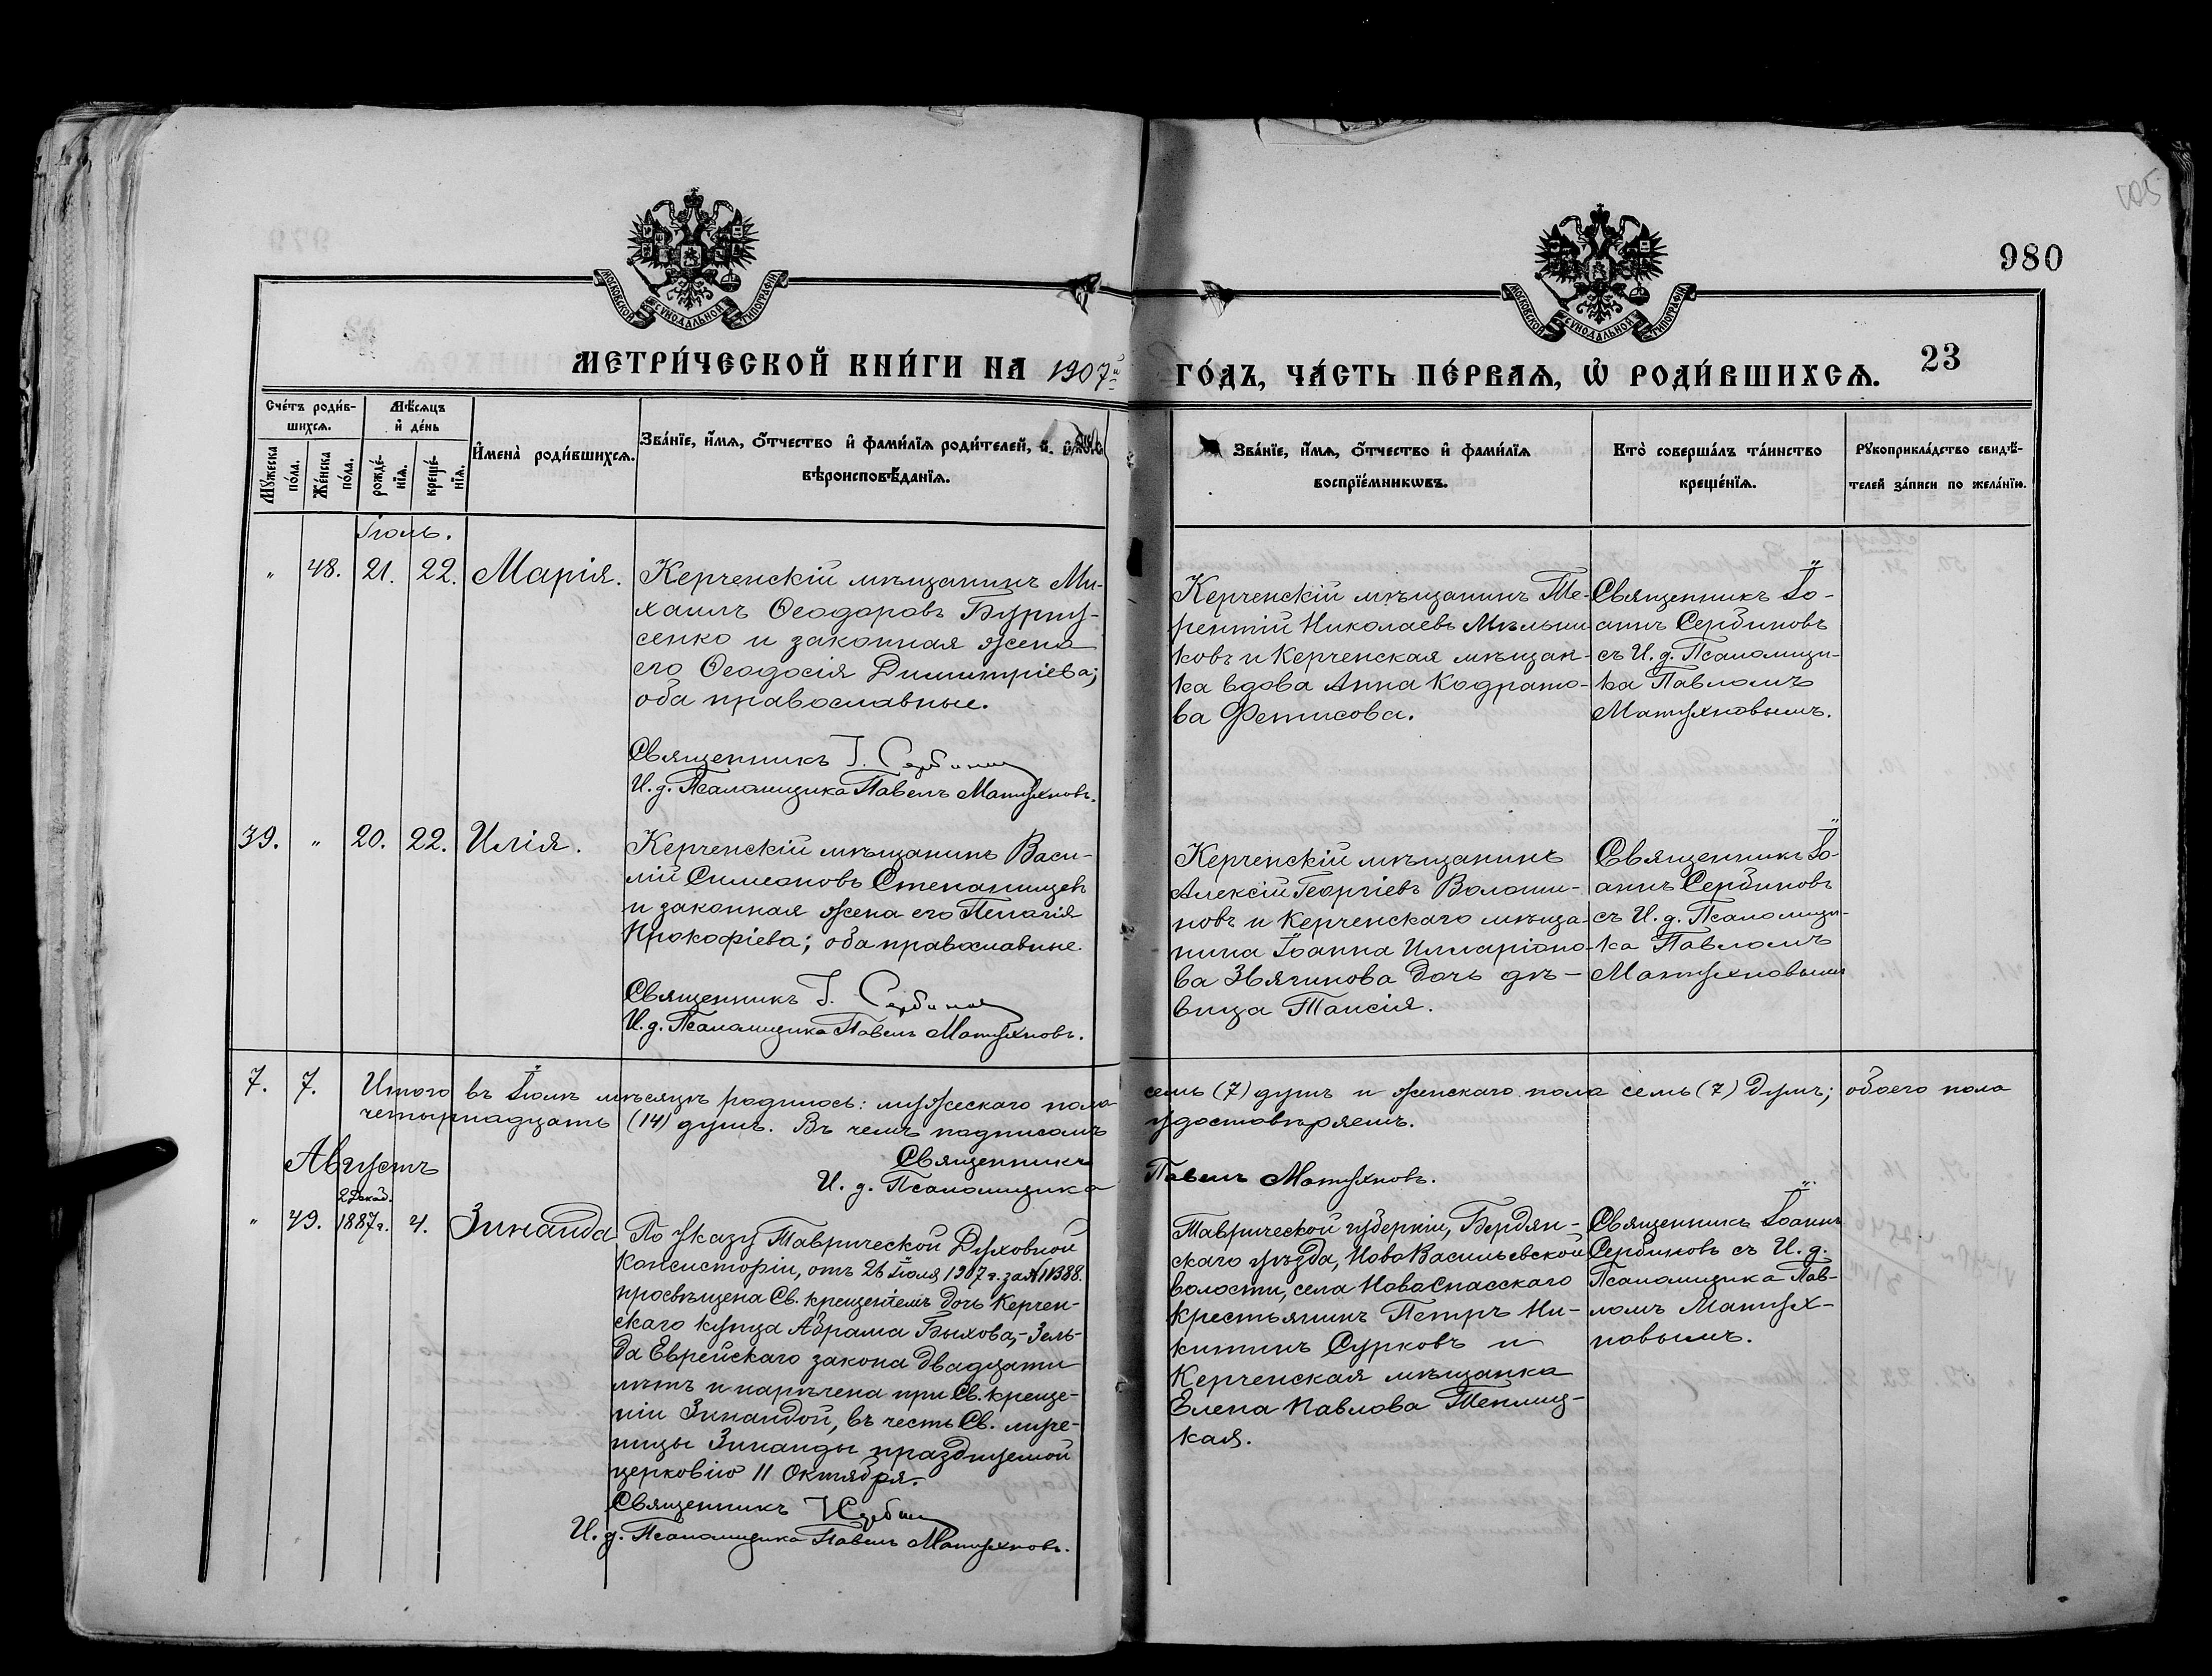 105
980
МОСКОВСКОЙ СѴНОДАЛЬНОЙ ТИПОГРАФІИ
МОСКОВСКОЙ СѴНОДАЛЬНОЙ ТИПОГРАФІИ
МЕТРИ́ЧЕСКОЙ КНИ́ГИ НА 1907й
ГО́ДЪ, ЧА́СТЬ ПЕ́РВАѦ, Ѡ РОДИ́ВШИХСѦ.
23
Сче́тъ роди́в-
шихсѧ.
Мѣ́сѧцъ
и҆ де́нь
Мꙋ́жеска
по́ла.
Же́нска
по́ла.
рожде́-
нїѧ.
креще́-
нїѧ.
И҆мена̀ роди́вшихсѧ.
Зва́нїе, и҆́мѧ, ѻ҆́тчество и҆ фами́лїѧ роди́телей, и҆
вѣроисповѣ́данїѧ.
Зва́нїе, и҆́мѧ, ѻ҆́тчество и҆ фами́лїѧ
воспрїе́мникѡвъ.
Кто̀ соверша́лъ та́инство
креще́нїѧ.
Рꙋкоприкла́дство свидѣ́-
телей за́писи по жела́нїю.
Іюль.
„ 48. 21. 22. Марія.
Керченскій мѣщанинъ Ми-
хаилъ Ѳеодоровъ Бурну-
сенко и законная жена
его Ѳеодосія Димитріева;
оба православные.
Священникъ І. Сербиновъ
И. д. Псаломщика Павелъ Матухновъ.
Керченскій мѣщанинъ Те-
рентій Николаевъ Мѣльни
ковъ и Керченская мѣщан-
ка вдова Анна Кодрато-
ва Фетисова.
Священникъ Іо-
аннъ Сербиновъ
съ И. д. Псаломщи-
ка Павломъ
Матухновымъ.
39. „ 20. 22. Илія.
Керченскій мѣщанинъ Васи-
лій Симеоновъ Степанищев
и законная жена его Пелагія
Прокофіева; оба православные.
Священникъ І. Сербиновъ
И. д. Псаломщика Павелъ Матухновъ.
Керченскій мѣщанинъ
Алексій Георгіевъ Волоши-
новъ и Керченскаго мѣща-
нина Іоанна Илларіоно-
ва Звягинова дочь дѣ-
вица Таисія.
Священникъ Іо-
аннъ Сербиновъ
съ И. д. Псаломщи-
ка Павломъ
Матухновымъ
7. 7. Итого въ Іюлѣ мѣсяцѣ родилось: мужескаго пола семь (7) душъ и женскаго пола семь (7) душъ; обоего пола
четырнадцать (14) душъ. Въ чемъ подписомъ удостовѣряемъ.
Священникъ
И. д. Псаломщика Павелъ Матухновъ.
Августъ
2 Декаб.
„ 49. 1887 г. 4. Зинаида
По указу Таврической Духовной
Консисторіи, отъ 26 Іюля 1907 г. за № 11388.
просвѣщена Св. крещеніемъ дочь Керчен-
скаго купца Абрама Быхова,- Зель-
да Еврейскаго закона двадцати
лѣтъ и наречена при Св. креще-
ніи Зинаидой, въ честь Св. муче-
ницы Зинаиды празднуемой
церковію 11 Октября.
Священникъ І. Сербиновъ
И. д. Псаломщика Павелъ Матухновъ.
Таврической губерніи, Бердян-
скаго уѣзда, НовоВасильевской
волости, села НовоСпасскаго
крестьянинъ Петръ Ни-
китинъ Сурковъ и
Керченская мѣщанка
Елена Павлова Теплиц-
кая.
Священникъ Іоаннъ
Сербиновъ съ И. д.
Псаломщика Пав-
ломъ Матух-
новымъ.